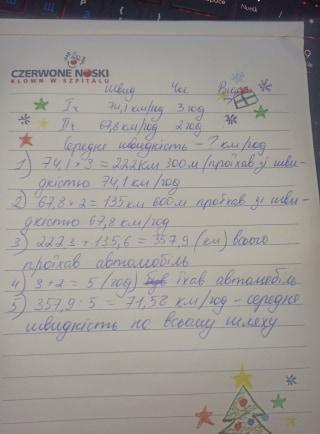 CZERWONE NOSKI
KLOWN W SZPITALU
Швид Час Відст
Iч 74,1 км/год 3 год
IIч 67,8 км/год 2 год
Середня швидкість - ? км/год
1) 74,1 × 3 = 222 км 300 м / проїхав зі шви-
дкістю 74,1 км/год
2) 67.8 × 2 = 135 км 600 м проїхав зі шви-
дкістю 67,8 км/год
3) 222.3 + 135,6 = 357,9 (км) всього
проїхав автомобіль
4) 3 + 2 = 5 (год) їхав автомобіль
5) 357,9 : 5 = 71,58 км/год - середня
швидкість по всьому шляху